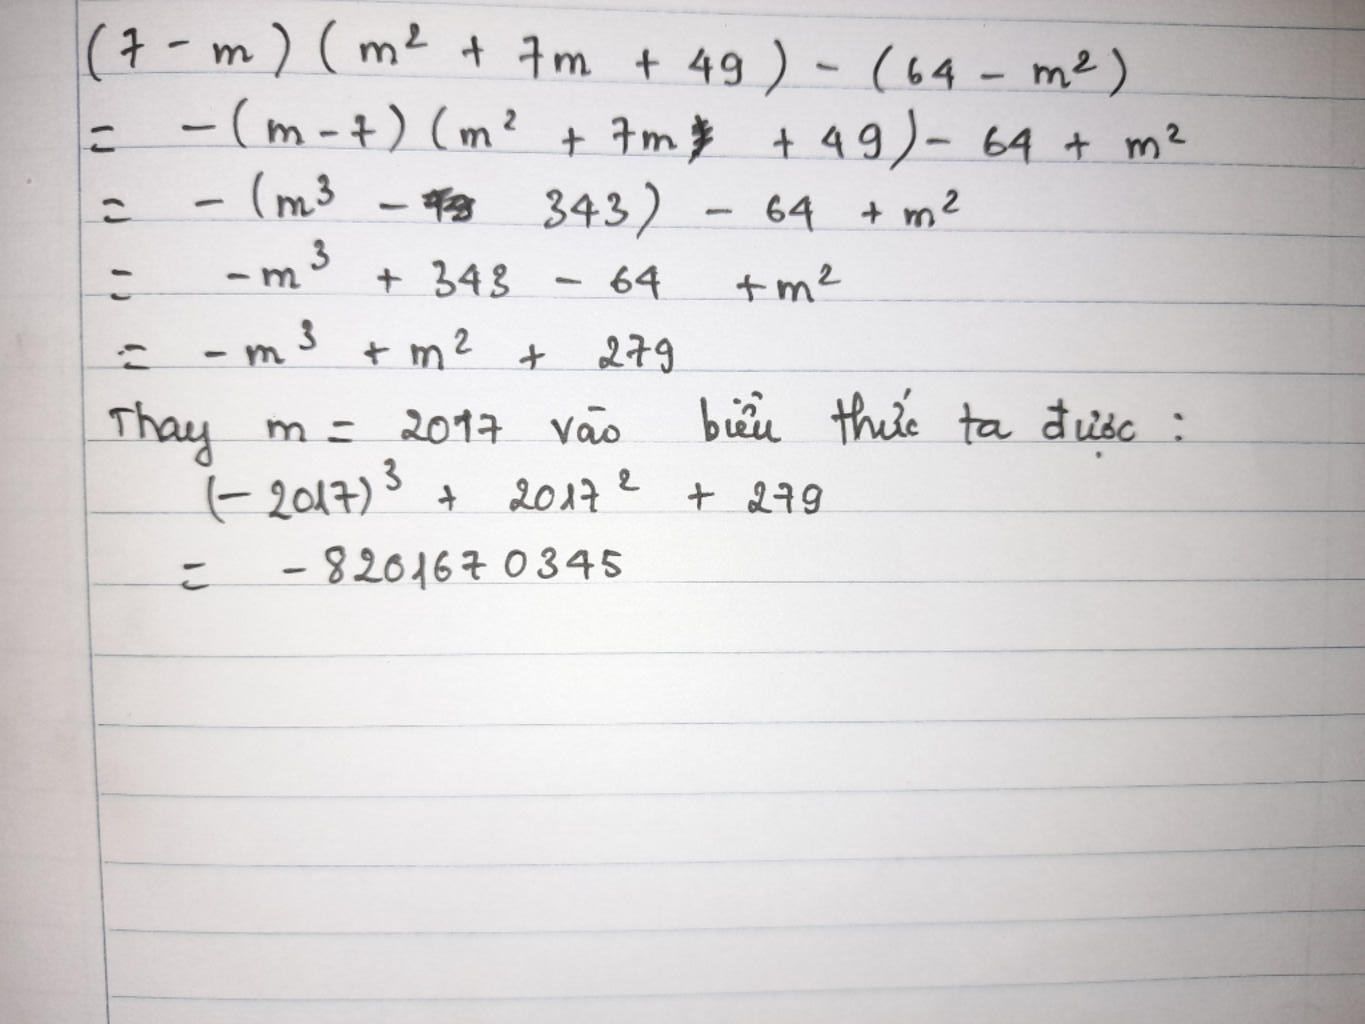 (7 - m) (m² + 7m + 49) - (64 - m²)
= -(m - 7) (m² + 7m + 49) - 64 + m²
= -(m³ - 343) - 64 + m²
= -m³ + 343 - 64 + m²
= -m³ + m² + 279
Thay m = 2017 vào biểu thức ta được :
(-2017)³ + 2017² + 279
= -8201670345